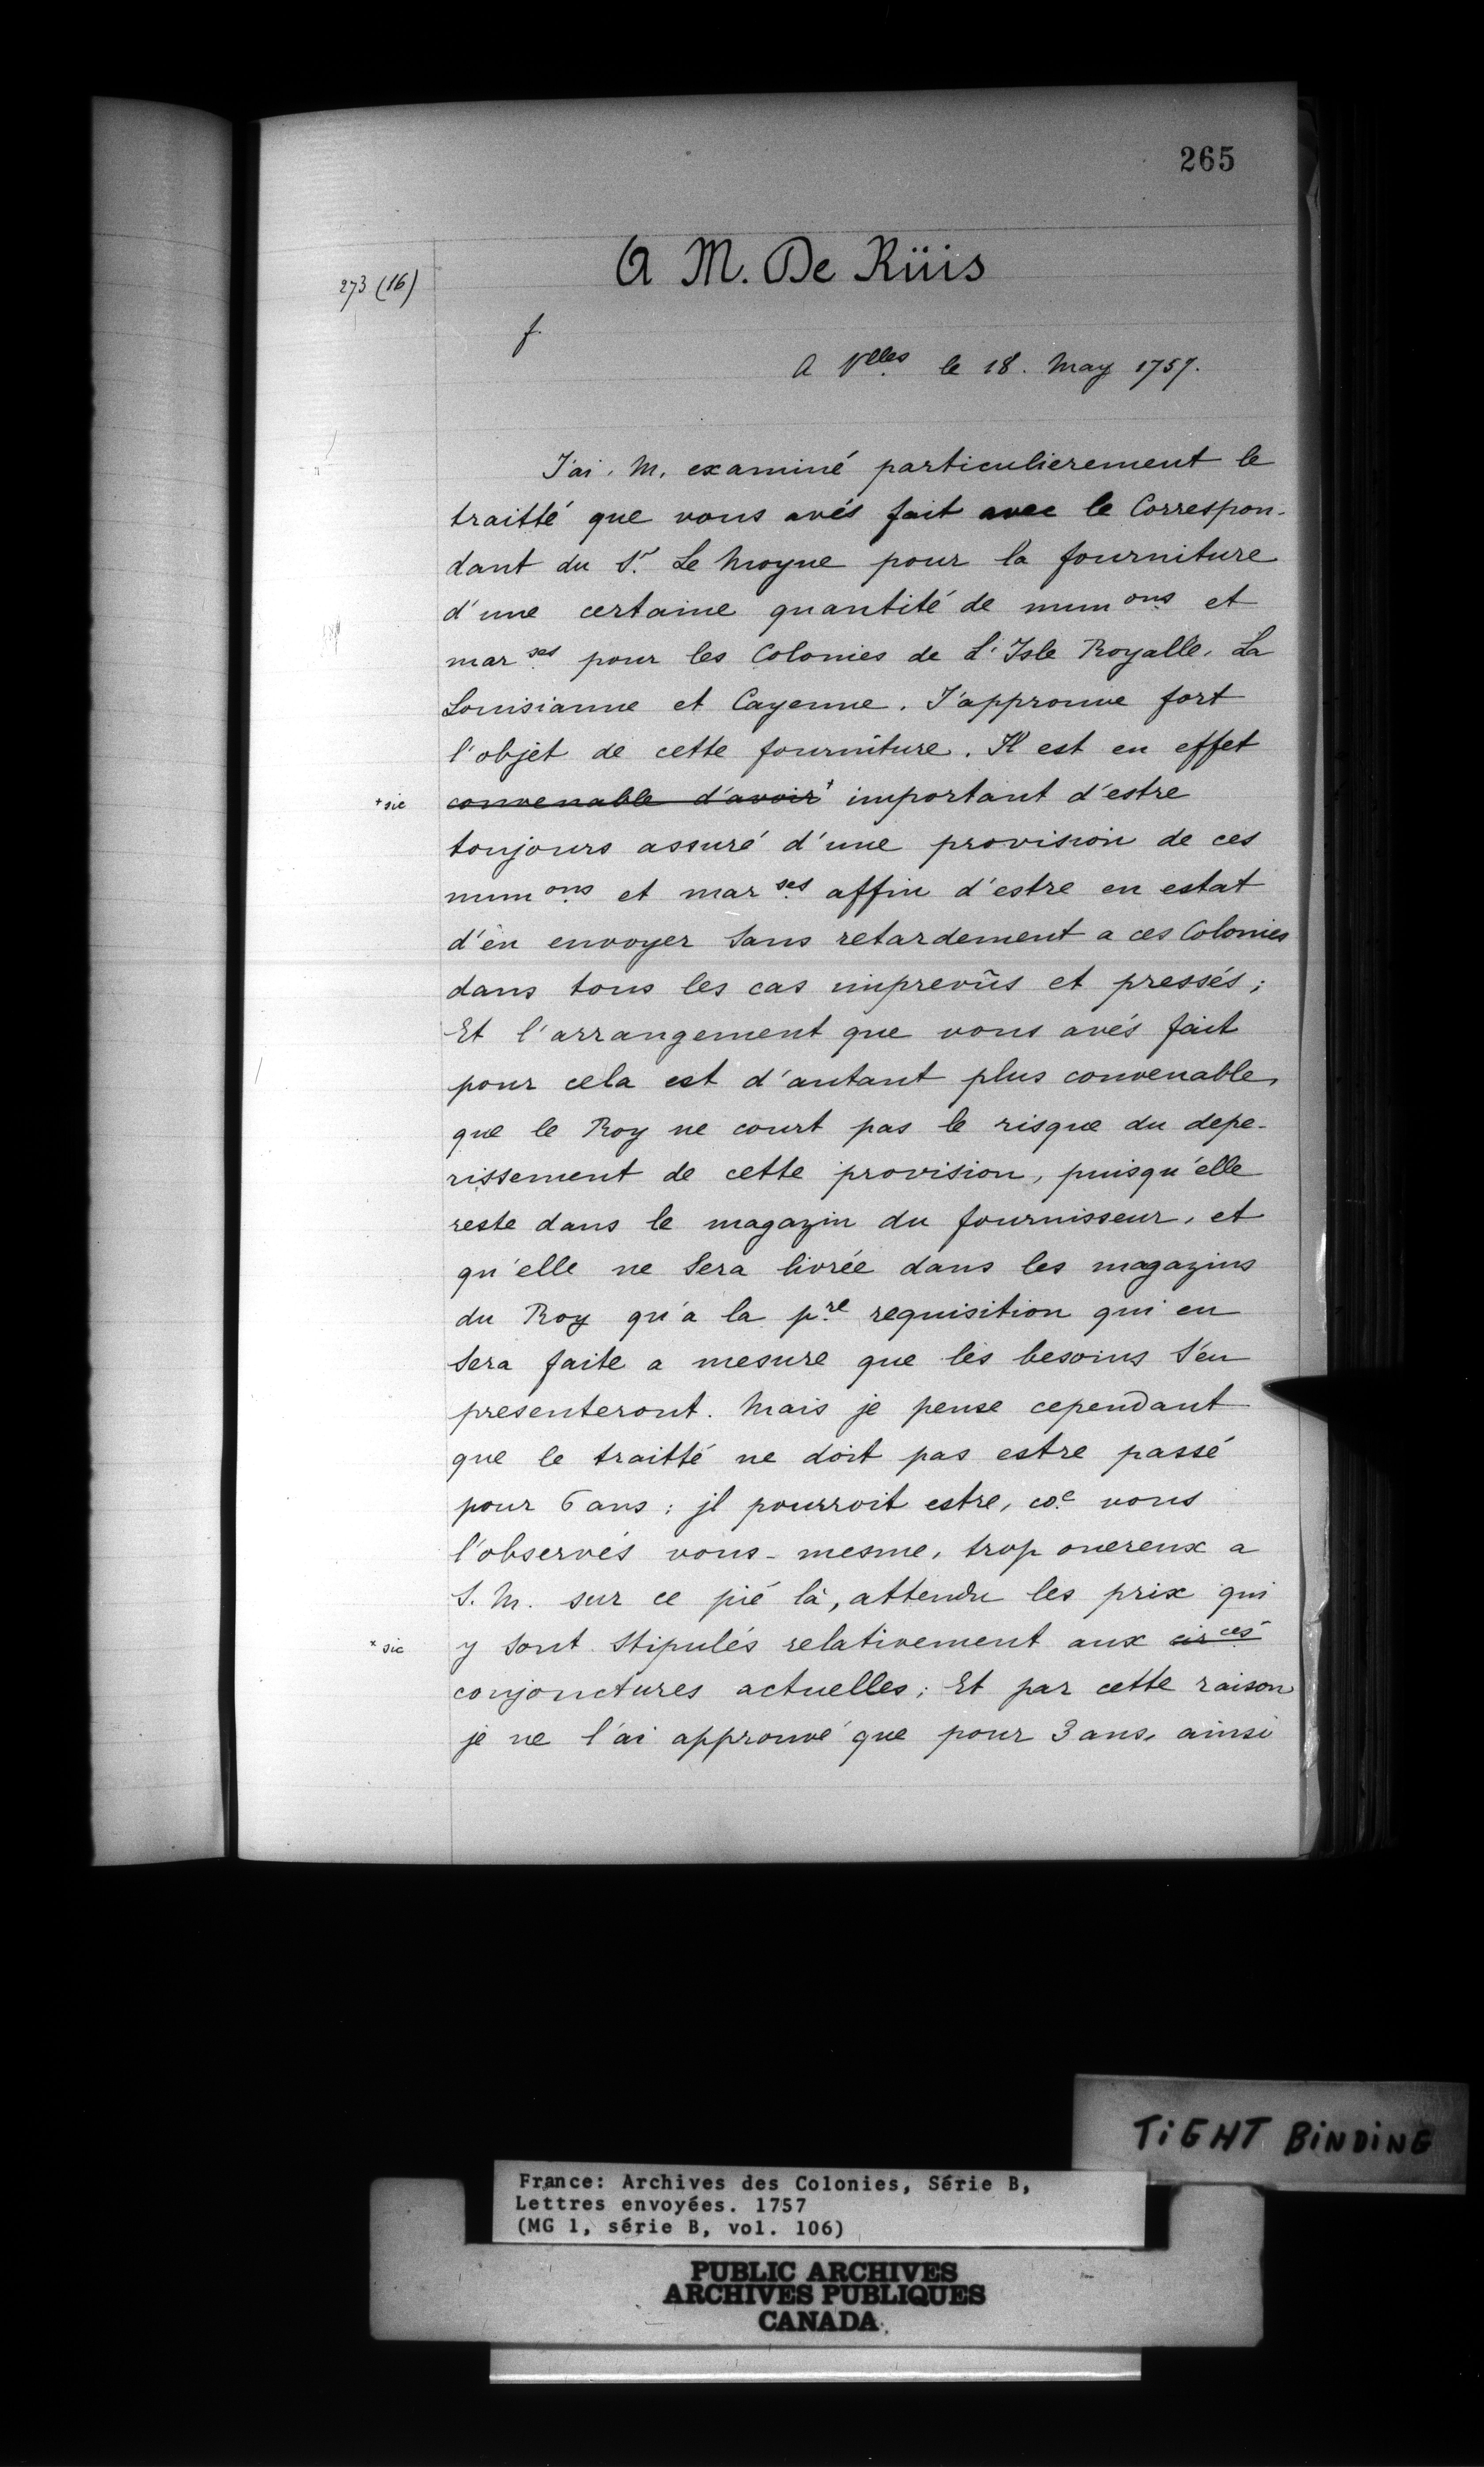 265
A M. De Rüis
273 (16)
f.
A Vlles le 18. May 1757.
J'ai, M, examiné particulierement le
traitté que vous avés fait avec le Correspon-
dant du Sr. Le Moyne pour la fourniture
d'une certaine quantité de munons et
marses pour les Colonies de L'Isle Royalle, La
Louisianne et Cayenne. J'approuve fort
l'objet de cette fourniture. Il est en effet
+ sic convenable d'avoir+ important d'estre
toujours assuré d'une provision de ces
munons et marses affin d'estre en estat
d'en envoyer Sans retardement a ces Colonies
dans tous les cas imprevûs et pressés;
Et l'arrangement que vous avés fait
pour cela est d'autant plus convenable,
que le Roy ne court pas le risque du depe-
rissement de cette provision, puisqu'elle
reste dans le magazin du fournisseur, et
qu'elle ne Sera livrée dans les magazins
du Roy qu'a la pre requisition qui en
Sera faite a mesure que les besoins S'en
presenteront. Mais je pense cependant
que le traitté ne doit pas estre passé
pour 6 ans: jl pourroit estre, coe vous
l'observés vous-mesme, trop onereux a
S. M. sur ce pié là, attendu les prix qui
× sic y Sont Stipulés relativement aux circes
conjonctures actuelles; Et par cette raison
je ne l'ai approuvé que pour 3 ans, ainsi
TiGHT BiNDiNG
France: Archives des Colonies, Série B,
Lettres envoyées. 1757
(MG 1, série B, vol. 106)
PUBLIC ARCHIVES
ARCHIVES PUBLIQUES
CANADA